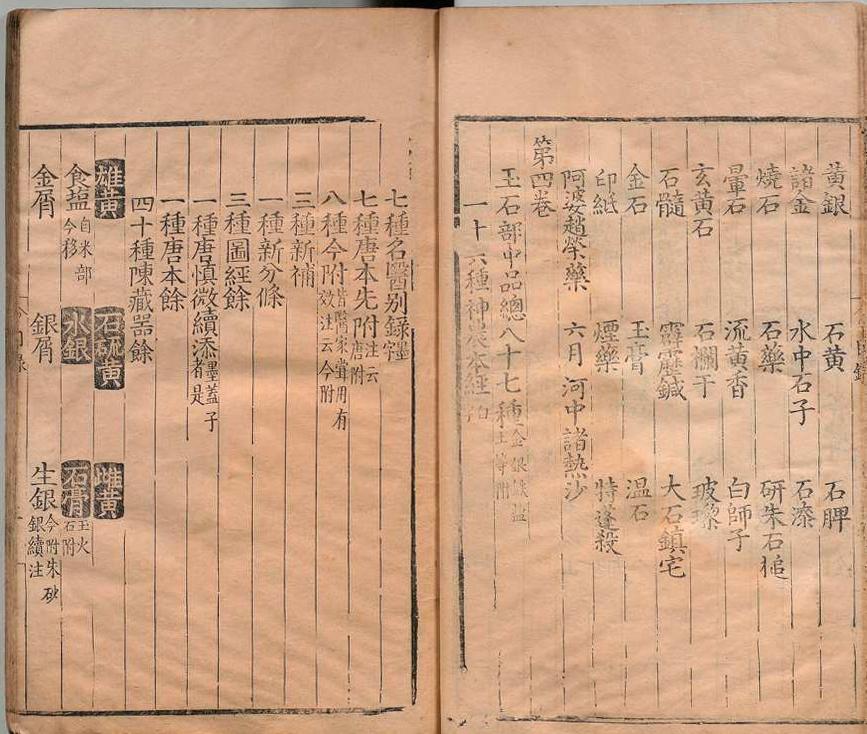 黄銀 石黄 石脾
諸金 水中石子 石漆
燒石 石藥 研朱石槌
暈石 流黄香 白師子
玄黄石 石欄干 玻瓈
石髓 霹靂鍼 大石鎮宅
金石 玉膏 温石
印紙 煙藥 特蓬殺
阿婆趙榮藥 六月河中諸熱沙
第四卷
玉石部中品總八十七種金銀鉄盐土等附
一十六種神農本經
七種名醫别錄墨字
七種唐本先附注云唐附
八種今附皆醫家嘗用有效注云今附
三種新補
一種新分條
三種圖經餘
一種唐慎微續添墨蓋子者是
一種唐本餘
四十種陳藏器餘
雄黄 石硫黄 雌黄
食塩自米部今移 水銀 石膏玉火石附
金屑 銀屑 生銀今附朱砂銀續注